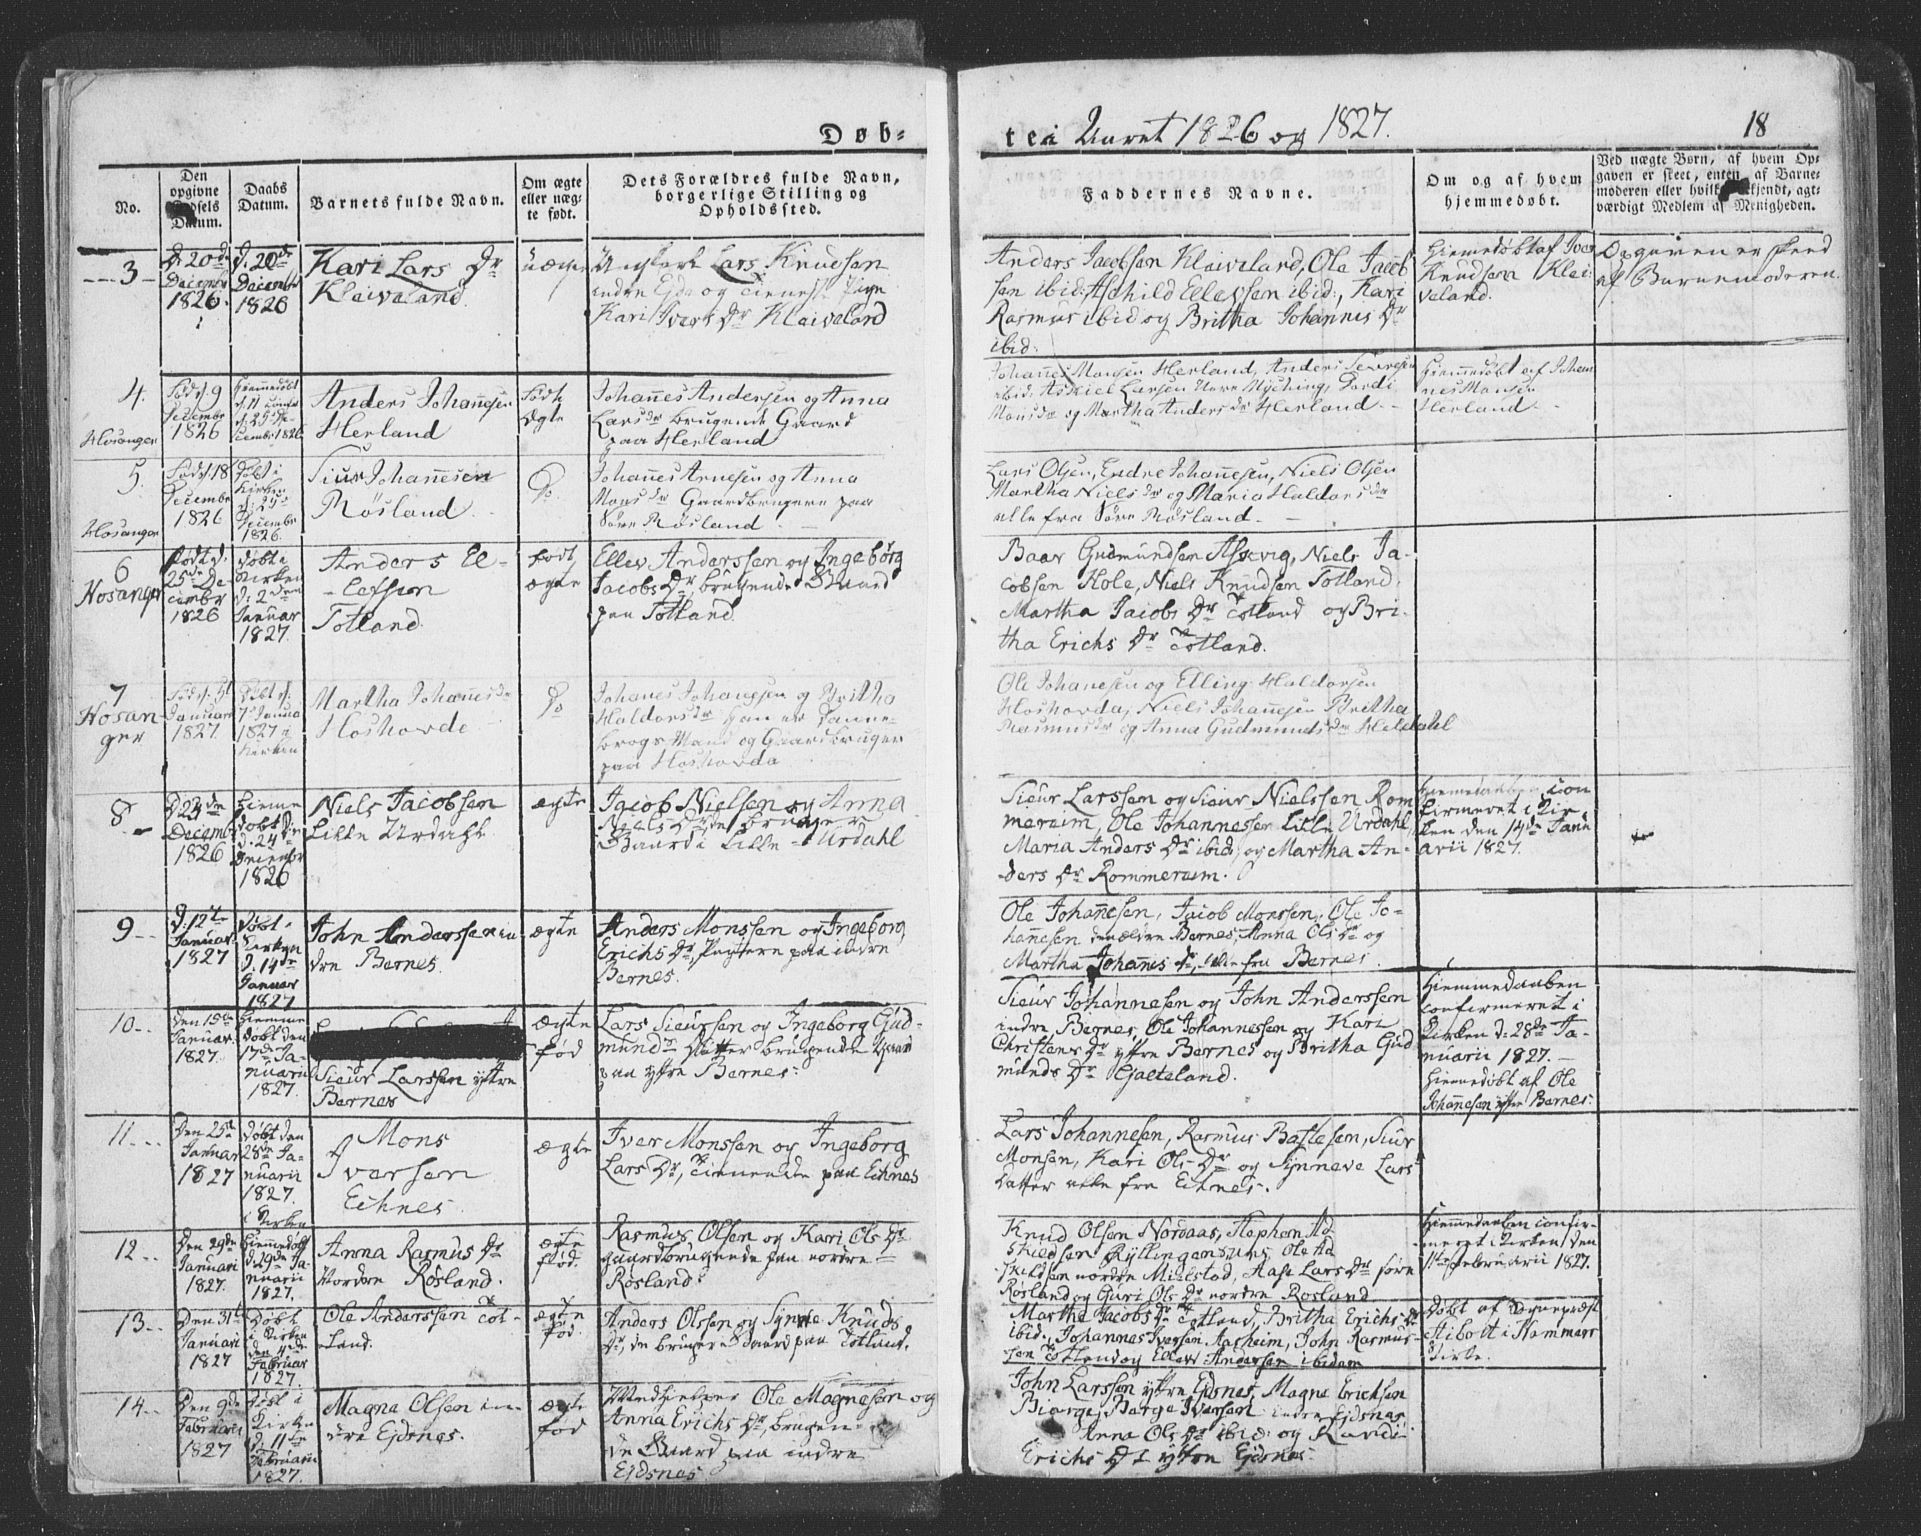 Døb=
No.
Den
opgivne
Fødsels
Datum.
Daabs
Datum.
Barnets fulde Navn.
Om ægte
eller næg-
te født.
Dets Forældres fulde Navn,
borgerlige Stilling og
Opholdssted.
te i Aaret 1826 og 1827.
18
Faddernes Navne.
Om og af hvem
hjemmedøbt.
Ved nægte Børn, af hvem Op-
gaven er skeet, enten af Barne-
moderen eller hvilket bekjendt, agt-
værdigt Medlem af Menigheden.
3
D. 20de
December
1826.
d. 20de
December
1826
Kari Lars Dr
Kleiveland
uægte
Ungkarl Lars Knudsen
indre Ejde og tienest Pige
Kari Ivers Dr Kleiveland
Anders Jacobsen Kleiveland, Ole Jacob
sen ibid: Aschild Ellevsen ibid:, Kari
Rasmus ibid og Britha Johannis Dr
ibid:
Hiemedøbt af Iver
Knudsen Klei
veland.
Opgiven er skeed
af Barnemoderen.
4.
Hosanger
Født d. 9
December
1826
Hiemmedøbt
d. 11 confir
d. 25 De
cember 1826
Anders Johannesen
Herland
Født
Ægte
Johannes Andersen og Anna
Larsdr brugende Gaard
paa Herland
Johannes Monsen Herland, Anders
ibid: Askiel Larsen Nere Myching, Gurdi
Monsdr og Martha Andersdr Herland.
Hiemmedøbt af Johan
nes Monsen
Herland.
5.
Hosanger
Født d. 18
December
1826
Døbt i
Kirken
d. 25
December
1826.
Siur Johannesen
Røsland
Do.
Johannes Arnesen og Anna
Monsdr Gaardbrugere paa
Søre Røsland
Lars Olsen, Endre Johannesen, Niels Olsen
Martha Nielsdr og Maria Haldorsdr
alle fra Søre Røsland.
6
Hosanger
Født d.
25de De
cember
1826
Døbt i
Kirken
d. 2den
Januar
1827.
Anders El-
lefsen
Totland.
født
ægte
Ellev Anderssen og Ingebørg
Jacobs Dr, brugende Gaard
paa Totland.
Baar Gudmundsen Askvig, Niels Ja-
cobsen Hole, Niels Knudsen Totland,
Martha Jacobs Dr Totland og Bri-
tha Erichs Dr Totland.
7
Hosan
ger
Født d. 5te
Januari
1827.
Døbt d.
7de Janua
1827 i
Kirken
Martha Johannisdr
Hoshovde
Do
Johanes Johannesen og Britha
Haldorsdr han er Danne-
brogs Mand og Gaardbruger
paa Hoshovda
Ole Johanesen og Elling Haldorsen
Hoshovda, Niels Johannesen Britha
Rasmusdr og Anna Gudmundsdr Heldahl
8
D. 23de
December
1826
Hieme
døbt den
d. 24de
December
1826
Niels Jacobsen
Lille Urdahl
ægte
Jacob Nielsen og Anna
Niels Dr, de bruger
Gaard i Lille Urdahl
Sieur Larssen og Sieur Nielssen Rom
mereim, Ole Johannessen Lille Urdahl,
Maria Anders Dr ibid, og Martha An-
ders Dr Rommereim.
Hiemedaaben con
firmeret i Kir
ken den 14de Janu
arii 1827.
9
D. 12te
Januar.
1827
Døbt i
Kirken
d. 14de
Januar
1827
John Anderssen in
dre Bernes.
ægte
Anders Monssen og Ingeborg
Erichs Dr, Pagtere paa indre
Bernes.
Ole Johannesen, Jacob Monssen, Ole Jo-
hannesen den ældre Bernes, Anna Ols Dr og
Martha Johannis dr, alle fra Bernes.
10
Den 15de
Januar.
1827.
Hiemme
døbt den
17de Ja-
nuarii
1827.
Sieur Larssen yttre
Bernes
ægte
fød
Lars Sieurssen og Ingeborg Gud-
munds Datter brugende Gaard
paa yttre Bernes.
Sieur Johannesen og John Anderssen
indre Bernes, Ole Johannesen og Kari
Christens Dr yttre Bernes og Britha Gud
munds Dr Gjeteland.
Hiemmedaaben
confirmeret i
Kirken d. 28de Ja-
nuarii 1827.
hiemmedøbt af Ole
Johannesen yttre Bernes.
11.
Den 25de
Januar
1827
Døbt den
28de Ja-
nuarii
1827.
i Kirken
Mons
Iversen
Echnes.
ægte
Iver Monssen og Ingeborg
Lars Dr, tienende paa Echnes
Lars Johannesen, Rasmus Baslesen, Siur
Monsen, Kari Ols Dr og Synneve Lars
Datter alle fra Echnes.
12
Den 29de
Januarii
1827.
Hiemmedøbt
d. 29de Ja-
nuarii
1827.
Anna Rasmus Dr
Nordre Røsland.
ægte
fød.
Rasmus Olsen og Kari Ols Dr
gaardbrugende paa nordre
Røsland.
Knud Olsen Nordaas, Stephen Ad
skieldsen Ryllingensund, Ole Ad
skieldsen nordre Mielstad, Aase Lars Dr søre
Røsland og Guri Ols Dr nordre Røsland
Hiemmedaaben confir-
meret i Kirken den
11te Februarii 1827.
13
Den 31te
Januarii
1827
Døbt
i Kirken
den 4de
Februar
1827.
Ole Anderssen Tot-
land.
ægte
fød.
Anders Olsen og Synne Knuds
Dr, de bruger Gaard paa Totland.
Martha Jacobs Dr Totland, Britha Erichs Dr
ibid:, Johannes Iversen Aasheim, John Rasmus-
sen Totland og Ellev Andersen ibidem
Døbt af Hr
i Hammers
Kirke.
14
Den 9de
Februarii
1827
Døbt i
Kirken
d. 11te
Februarii
1827.
Magne Olsen in-
dre Ejdsnes.
ægte
fød
Medhielper Ole Magnesen og
Anna Erichs Dr, brugen-
de Gaard paa indre
Ejdsnes
John Larssen yttre Ejdsnes, Magne Erichsen
Biørge, Børge Iversen indre Ejdsnes
Anna Ols Dr ibid: og Randi
Erichs Dr yttre Ejdsnes.